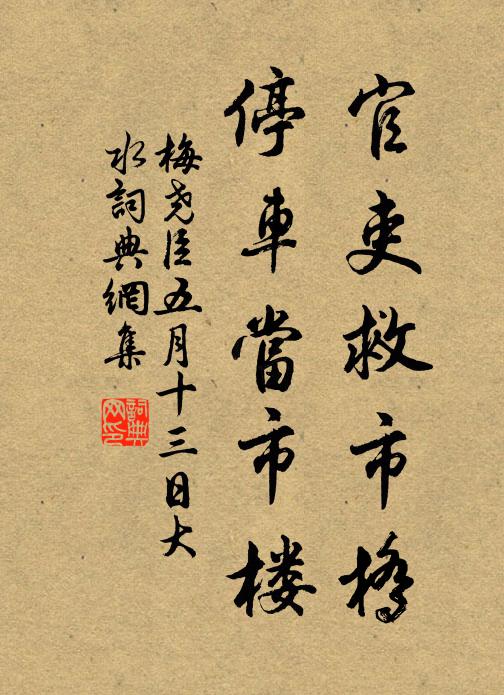 官吏救市橋
停車當市楼
梅尧臣五月十三日大
水詞典網集
詞典
网印